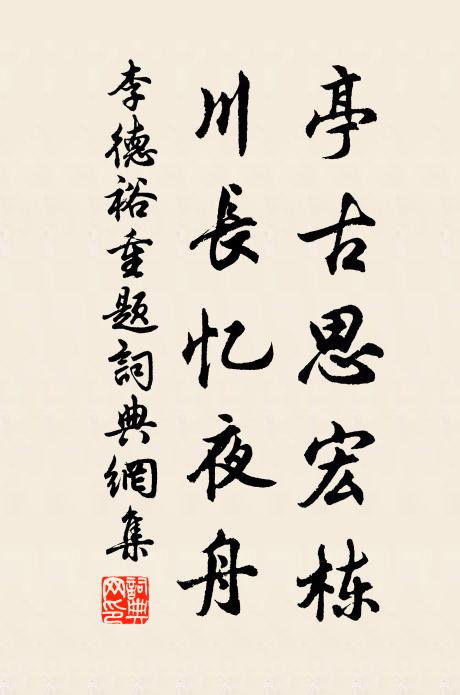 亭古思宏栋
川長忆夜舟
李德裕重题詞典網集
詞典网印